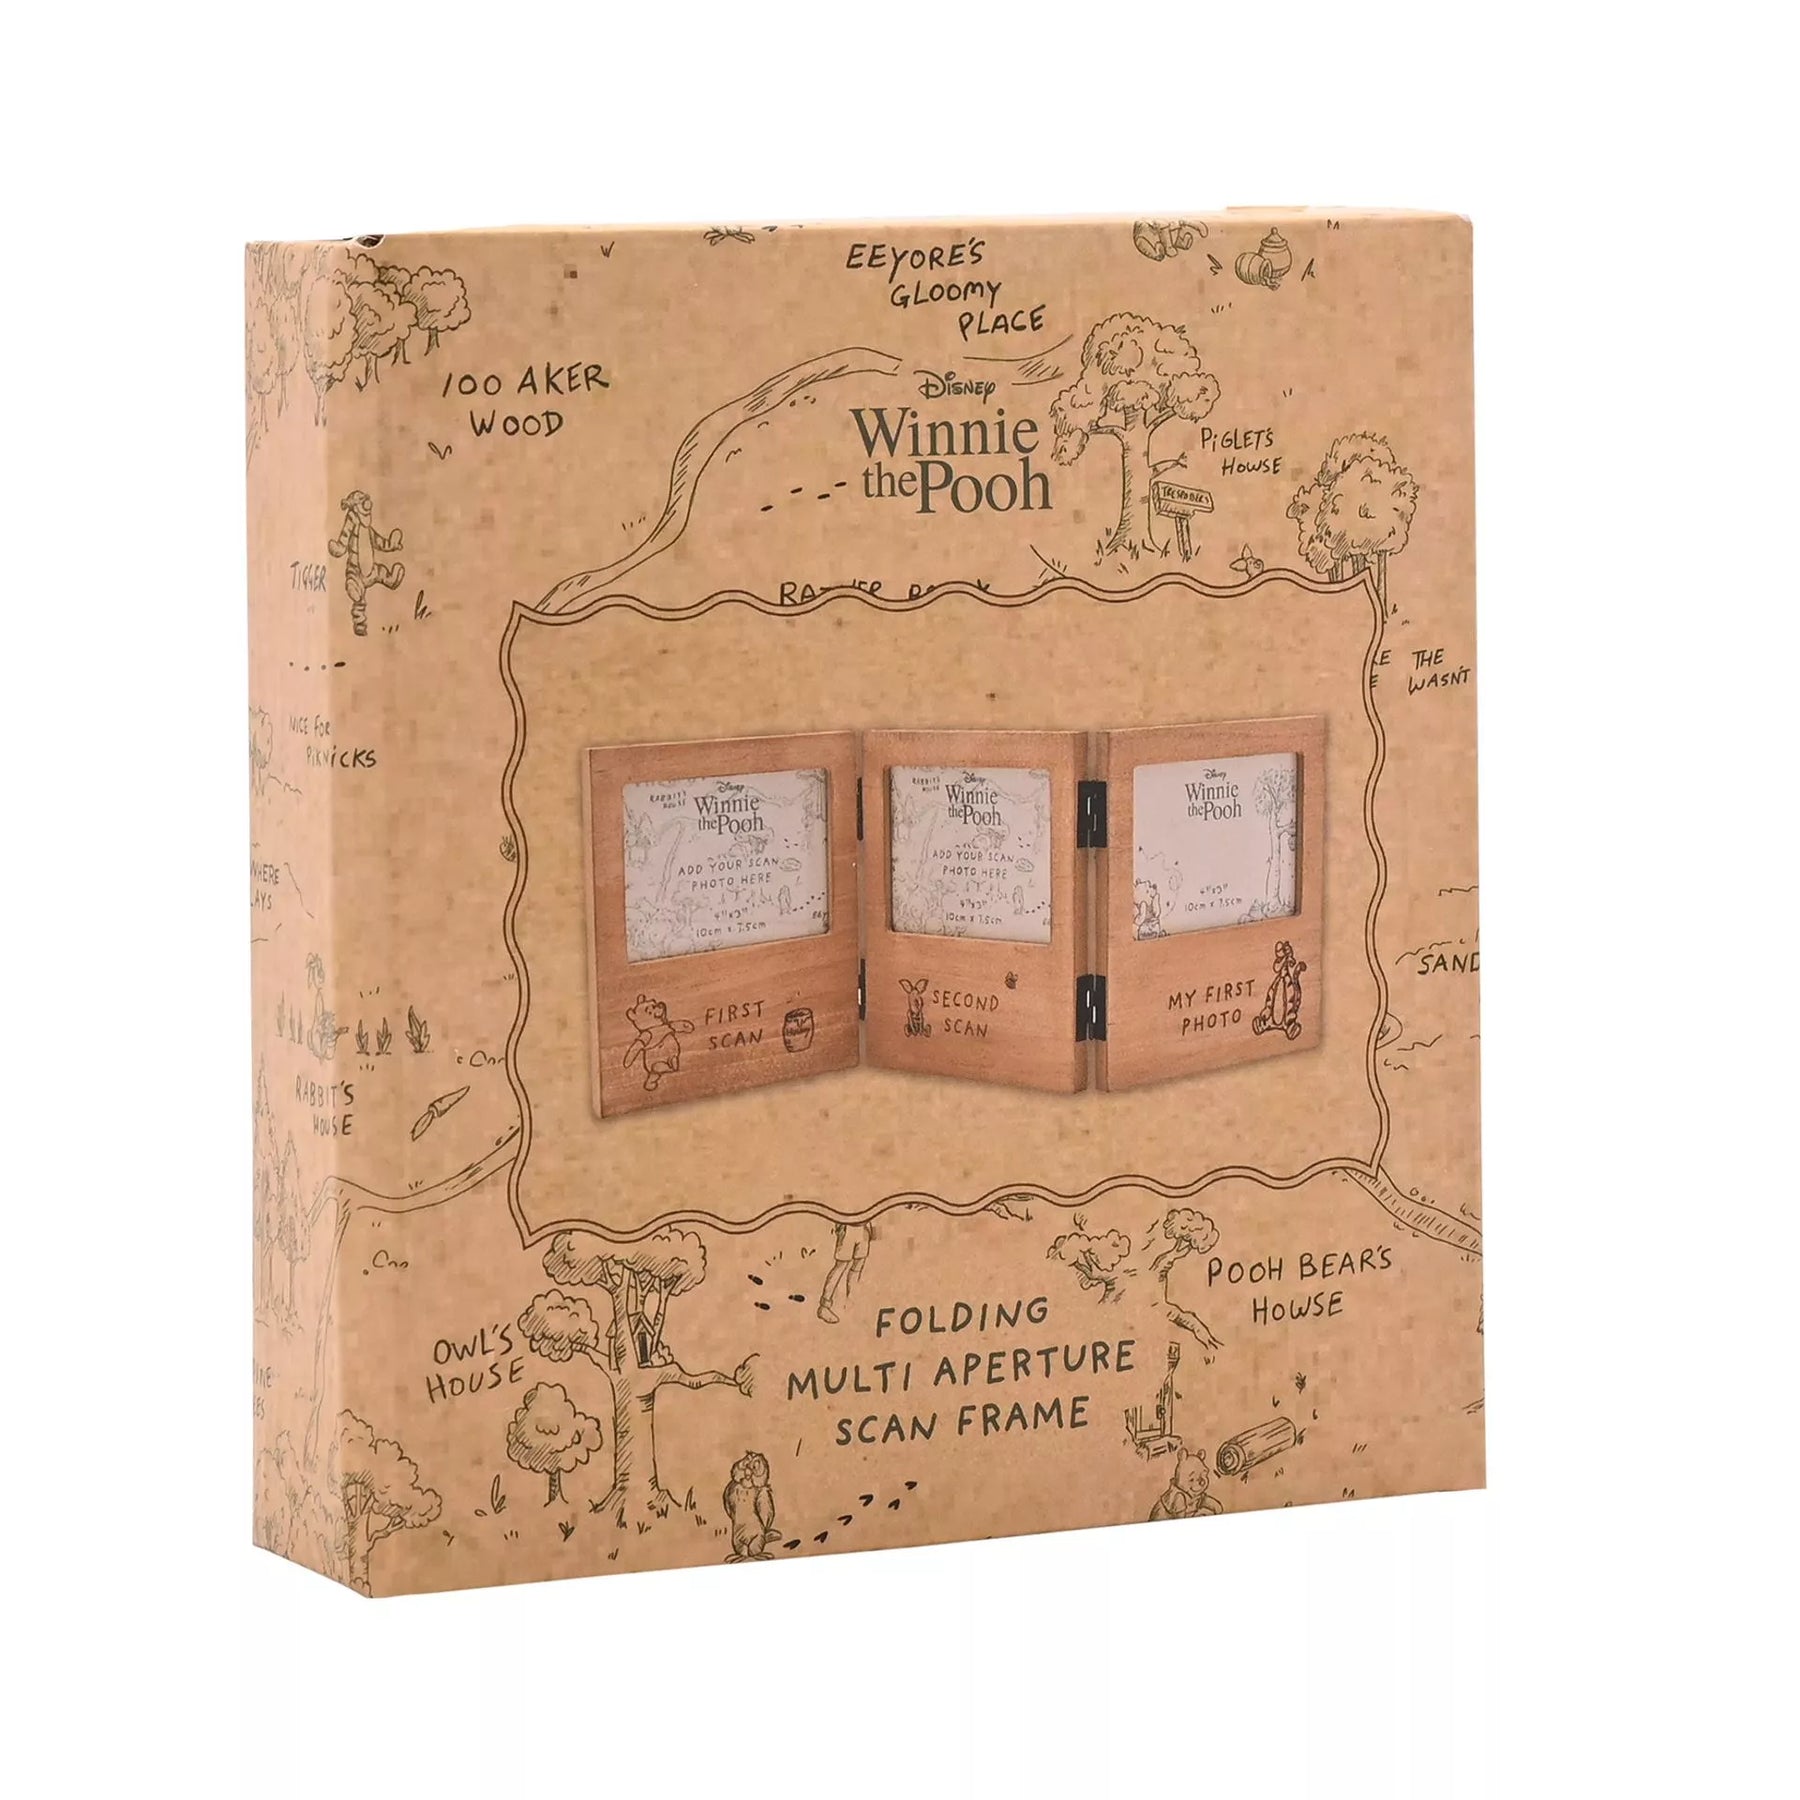 EEYORE'S
GLOOMY
PLACE
100 AKER
WOOD
Disney
Winnie
the Pooh
PIGLET'S
HOWSE
TRESPASSERS
TIGGER
THE
WASN'T
NICE FOR
PIKNICKS
Disney
Winnie
the Pooh
RABBIT'S
HOUSE
ADD YOUR SCAN
PHOTO HERE
4"x3"
10cm x 7.5cm
FIRST
SCAN
Hunny
Disney
Winnie
the Pooh
RABBIT'S
HOUSE
ADD YOUR SCAN
PHOTO HERE
4"x3"
10cm x 7.5cm
SECOND
SCAN
Disney
Winnie
the Pooh
4"x3"
10cm x 7.5cm
MY FIRST
PHOTO
SAND
RABBIT'S
HOUSE
POOH BEAR'S
HOWSE
OWL'S
HOUSE
FOLDING
MULTI APERTURE
SCAN FRAME